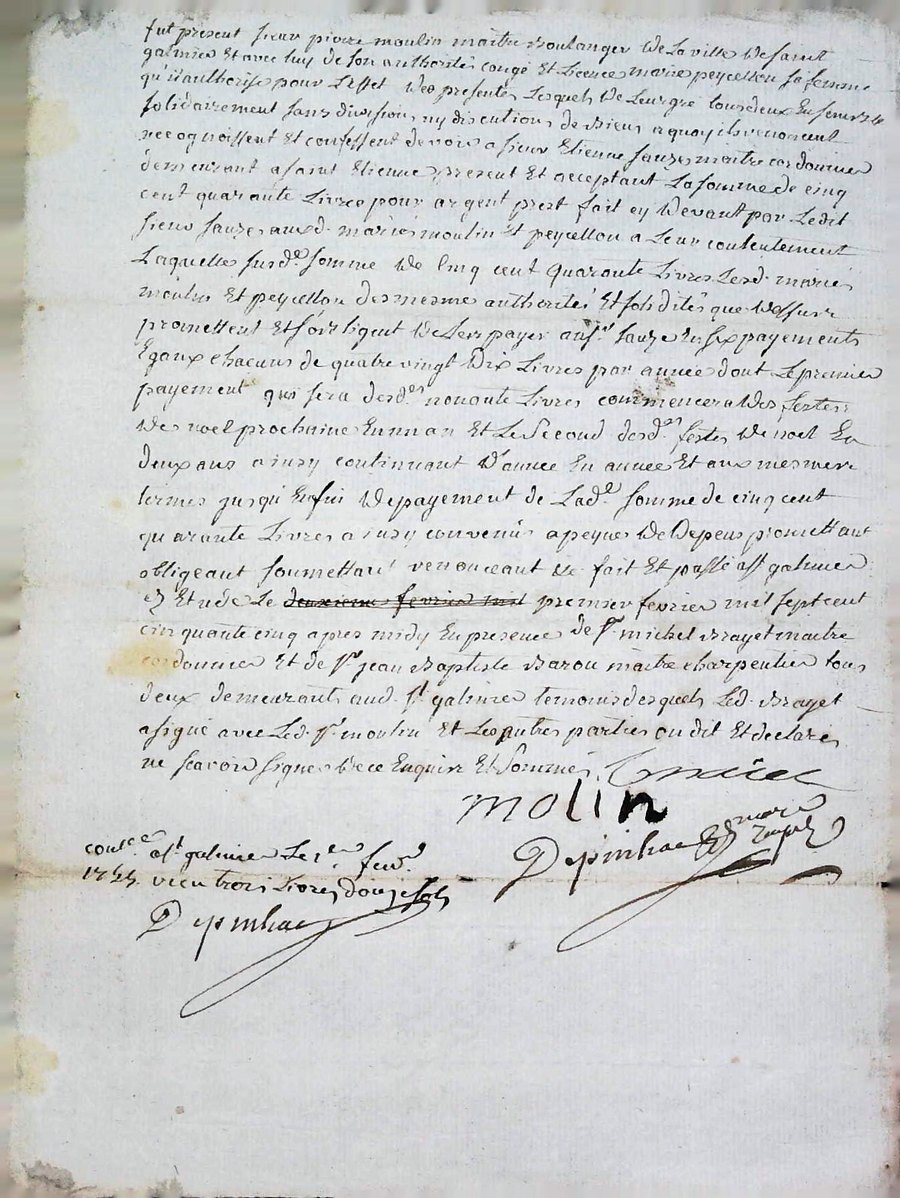 fut present sieur pierre moulin maitre Boulanger de la ville de saint
galmier Et avec luy de son authorité congé Et Licence marie peycellon sa femme
qu'il authorise pour L'effet des presentes Lesquels de Leur gré tous deux Ensemble
solidairement sans division ny discutions de Biens a quoy ils renoncent
recognoissent Et confessent devoir a sieur Etienne sauze maitre cordonnier
demeurant a saint Etienne present Et acceptant La somme de cinq
cent quarante Livres pour argent prest fait cy devant par Ledit
sieur sauze ausd. mariés moulin Et peycellon a Leur contentement
Laquelle susd.e somme de Cinq cent quarante Livres Lesd. mariés
moulin Et peycellon des mesme authorités Et solidités que dessus
promettent Et s'obligent de Les payer aud. sr. sauze En six payements
Egaux chacuns de quatre vingt dix Livres par année dont Le premier
payement qui sera desd.es nonante Livres commencera des festes
de noel prochaine En un an Et Le Second desd.es festes de noel En
deux ans ainsy continuant d'année En année Et aux mesmes
termes jusqu'En fin de payement de Lad.e somme de cinq cent
quarante Livres ainsy convenu a peynes de Depens promettant
obligeant soumettant renonceant &c. fait Et passé a st galmier
Et Etude Le deuxieme fevrier mil premier fevrier mil sept cent
cinquante cinq apres midy En presence de sr michel Brayet maitre
cordonnier Et de sr jean Baptiste Barou maitre charpentier tous
deux demeurants aud. st. galmier temoins desquels Led. Brayet
a signé avec Led. sr. moulin Et Les autres parties ont dit Et declarés
ne scavoir signer de ce Enquis Et Sommés
molin
Depinhac
conlle. a st. galmier Le 1er fevr.
1755. reçu trois Livres douze sols
Depinhac